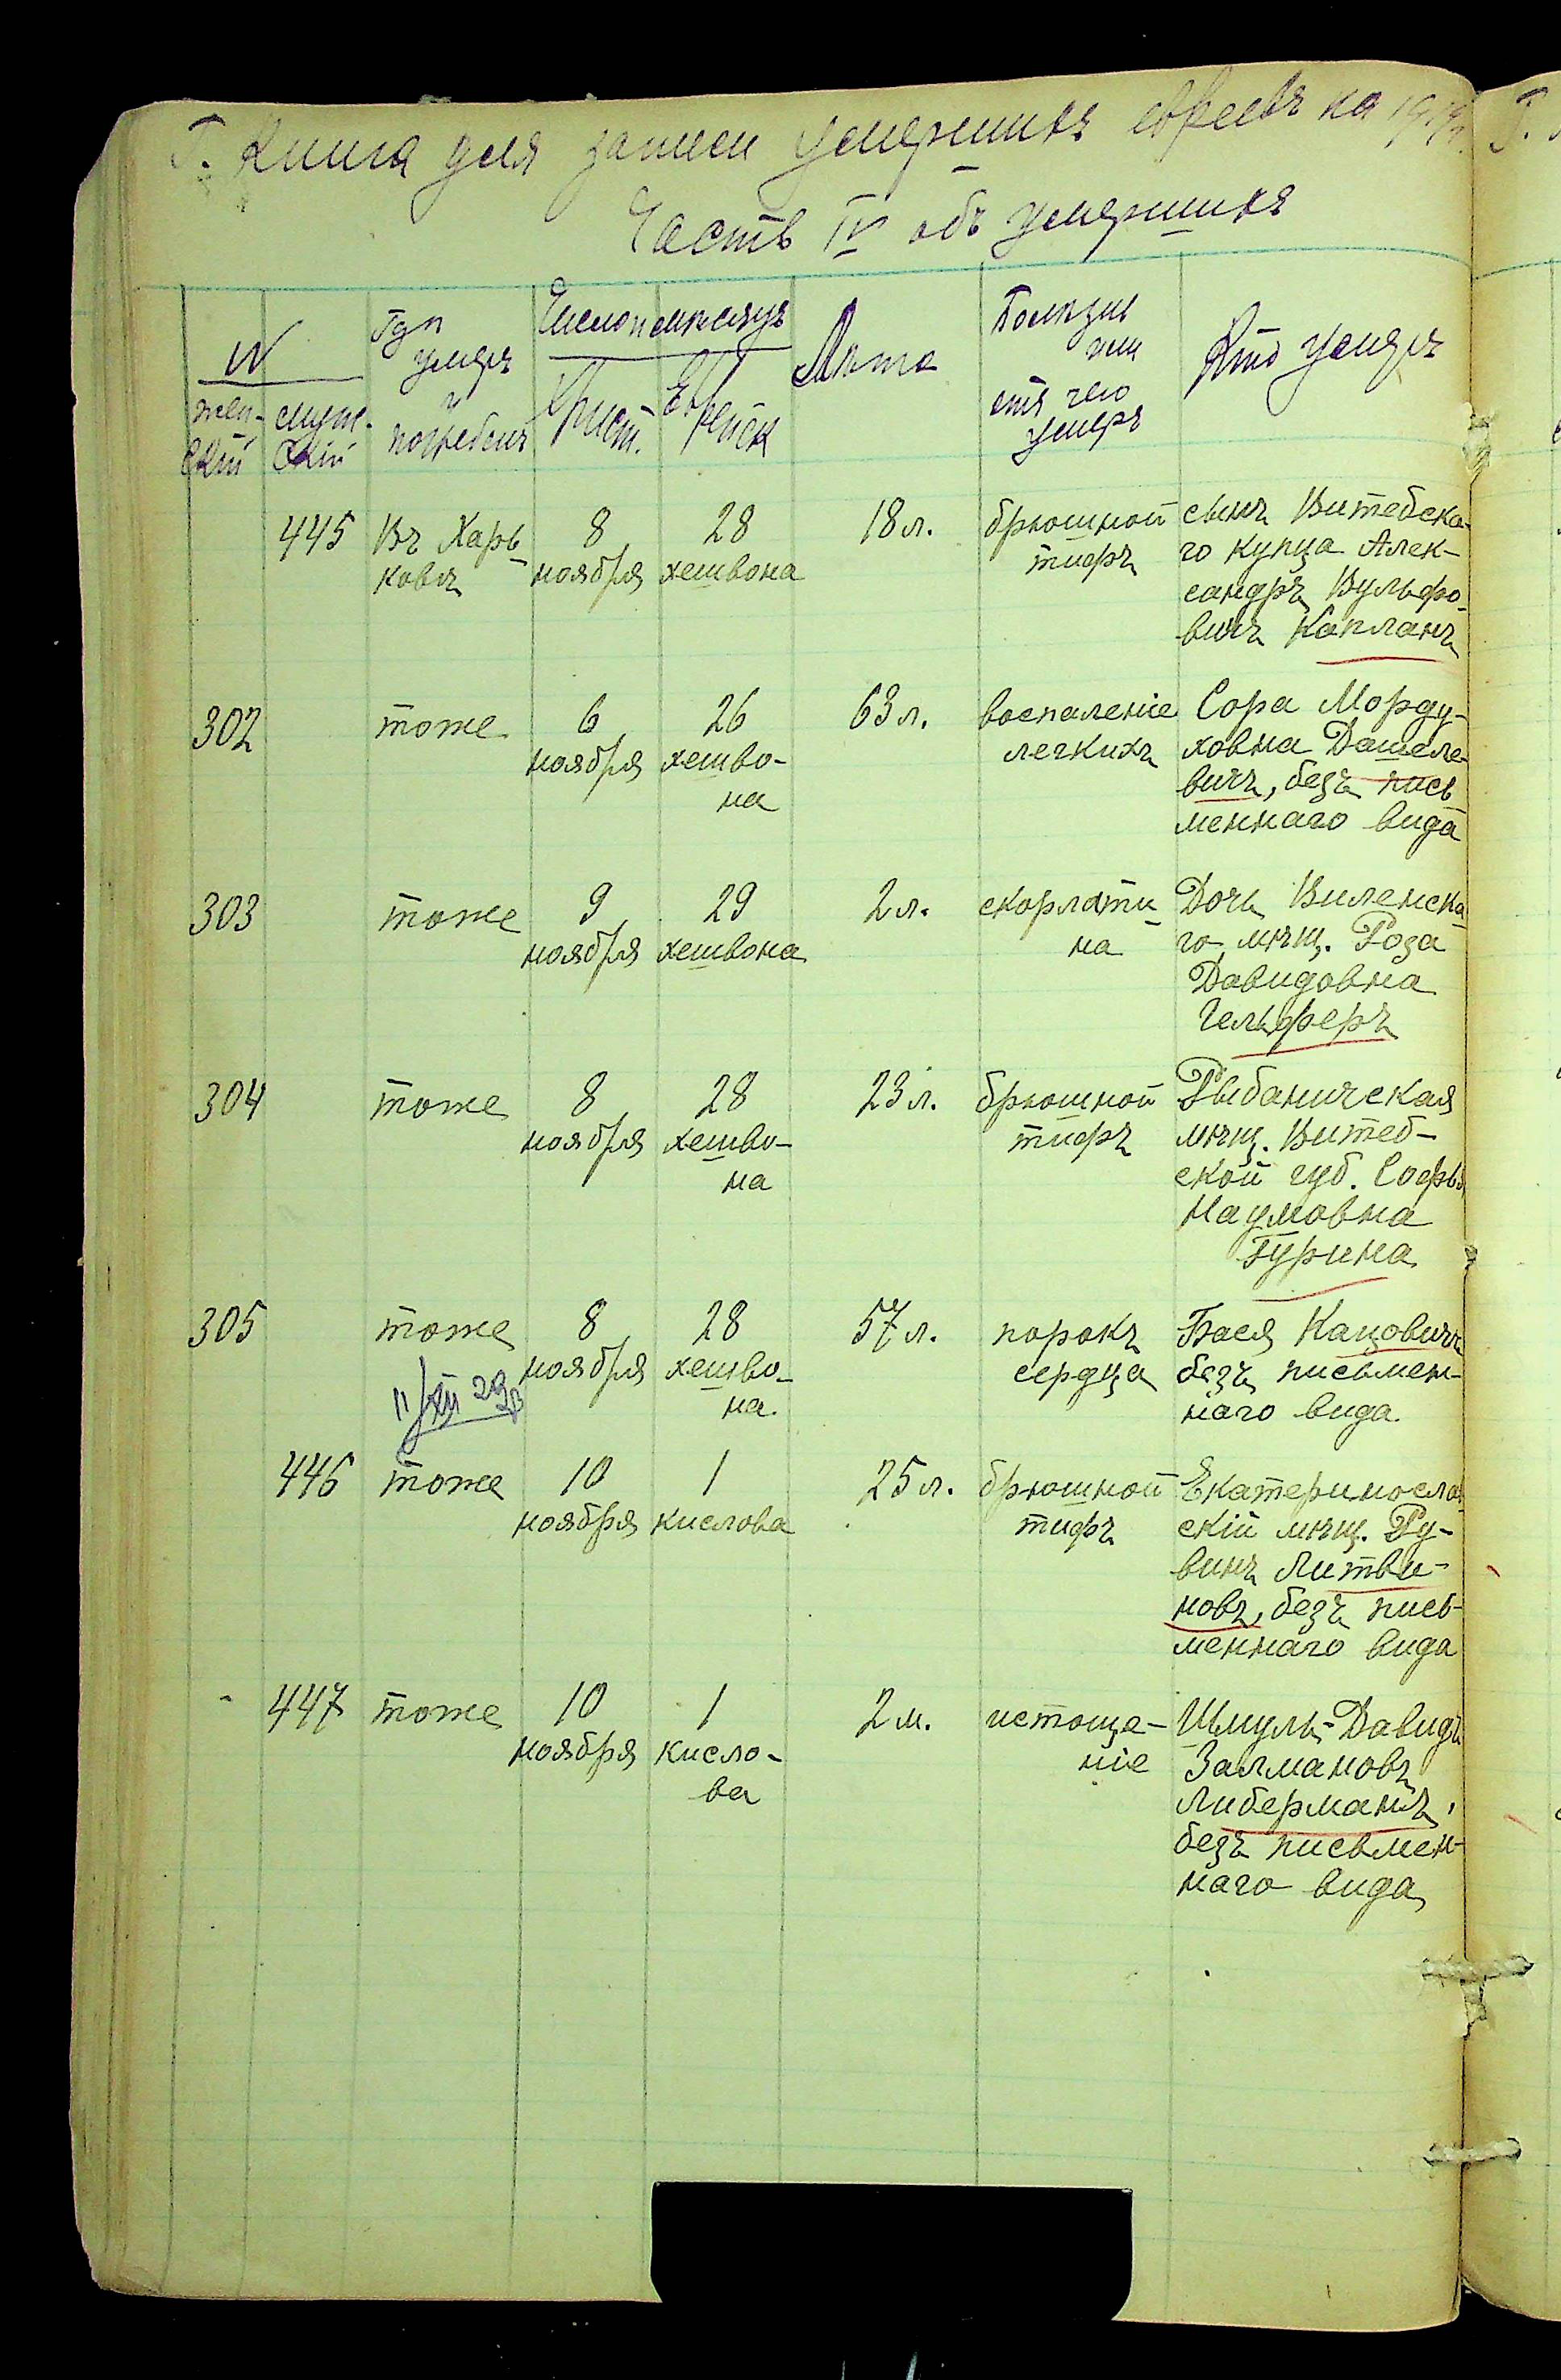 Г. Книга для записи умершихъ евреевъ на 1919 г.
Часть IV объ умершихъ
N
жен-
скій
муж-
скій
Гдѣ
умеръ
и
погребенъ
Число и мѣсяцъ
Христ.
Еврейск
Лѣта
Болѣзнь
или
отъ чего
умеръ
Кто умеръ
445 Въ Харь-
ковѣ
8
ноября
28
хешвона
18 л.
брюшной
тифъ
сынъ Витебска-
го купца Алек-
сандръ Вульфо-
вичъ Капланъ
302 тоже
6
ноября
26
хешво-
на
63 л.
воспаленіе
легкихъ
Сора Морду-
ховна Дашеле-
вичъ, безъ пись
меннаго вида
303 тоже
9
ноября
29
хешвона
2 л.
скорлоти-
на
Дочь Виленска-
го мѣщ. Роза
Давидовна
Гельферъ
304 тоже
8
ноября
28
хешво-
на
23 л.
брюшной
тифъ
Рыбаничская
мѣщ. Витеб-
ской губ. Софья
Наумовна
Гурина
305 тоже
8
ноября
28
хешво-
на.
57 л.
порокъ
сердца
Бася Кацовичъ
безъ письмен-
наго вида.
11/XII 29
446 тоже
10
ноября
1
кислова
25 л.
брюшной
тифъ
Екатериносла
скій мѣщ. Ру-
винъ Литви-
новъ, безъ пись-
меннаго вида
447 тоже
10
ноября
1
кисло-
ва
2 м.
истоще-
ніе
Шмуль-Давидъ
Залмановъ
Либерманъ,
безъ письмен-
наго вида